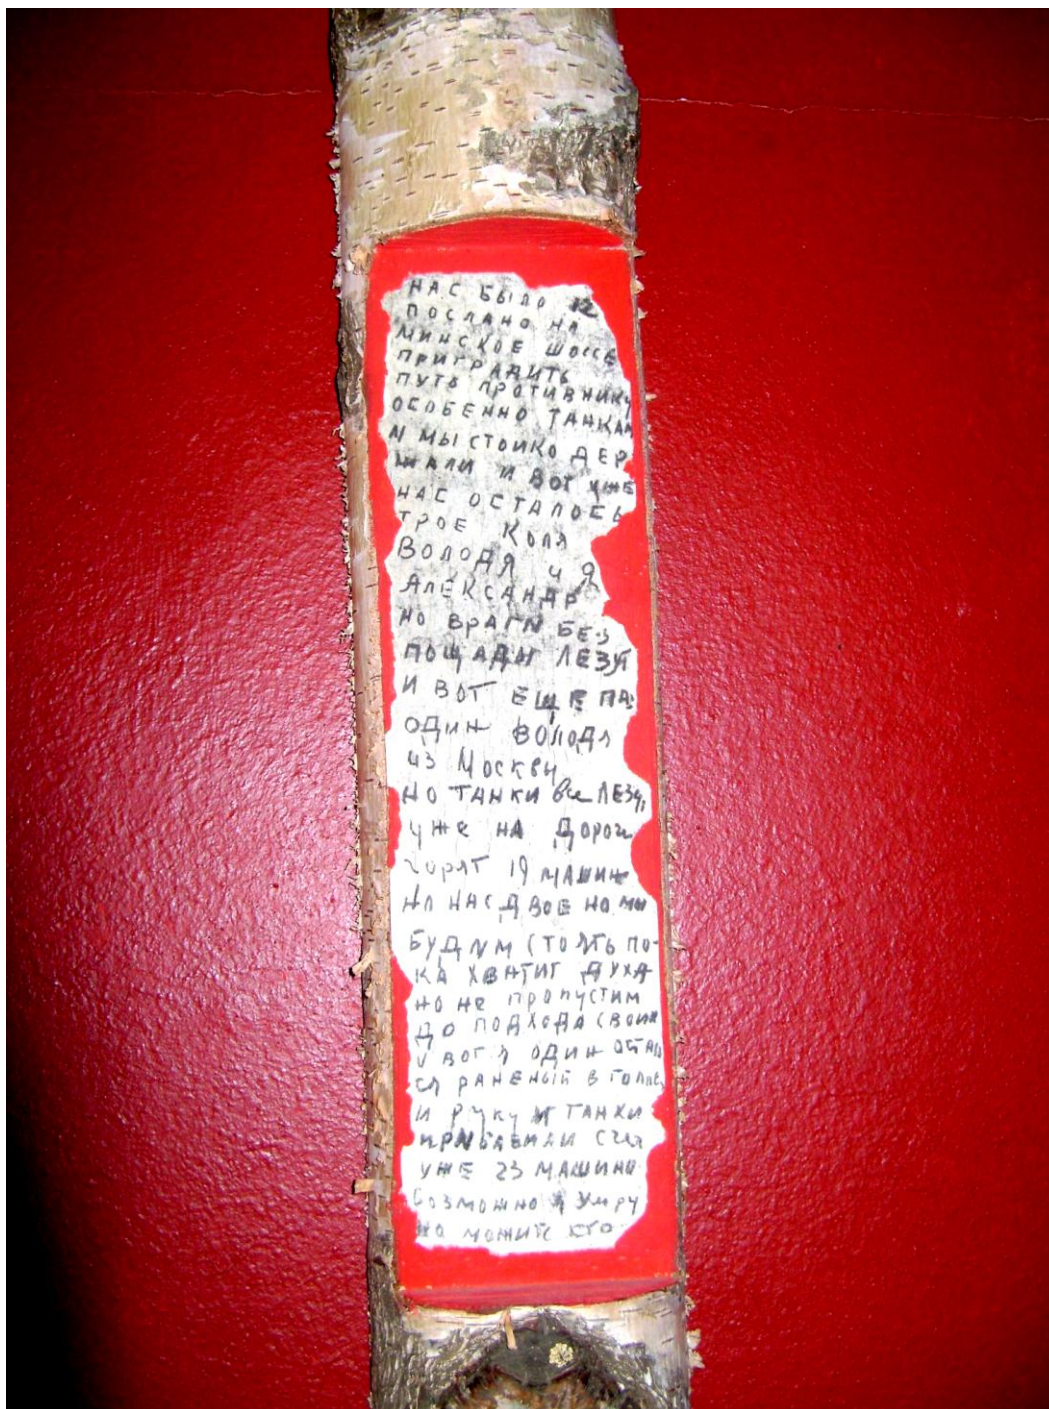 НАС БЫЛО 12
ПОСЛАНО НА
МИНСКОЕ ШОССЕ
ПРИГРАДИТЬ
ПУТЬ ПРОТИВНИКУ
ОСОБЕННО ТАНКАМ
И МЫ СТОИКО ДЕР
ЖАЛИ И ВОТ УЖЕ
НАС ОСТАЛОСЬ
ТРОЕ КОЛЯ
ВОЛОДЯ И Я
АЛЕКСАНДР
НО ВРАГИ БЕЗ
ПОЩАДЫ ЛЕЗУТ
И ВОТ ЕЩЕ ПА
ОДИН ВОЛОДЯ
ИЗ МОСКВЫ
НО ТАНКИ все ЛЕЗУТ
УЖЕ НА ДОРОГЕ
ГОРЯТ 19 МАШИН
НО НАС ДВОЕ НО МЫ
БУДИМ СТОЯТЬ ПО-
КА ХВАТИТ ДУХА
НО НЕ ПРОПУСТИМ
ДО ПОДХОДА СВОИХ
И ВОТ Я ОДИН ОСТАЛ
СЯ РАНЕНЫЙ В ГОЛОВУ
И РУКУ И ТАНКИ
ПРИБАВИЛИ СЧЕТ
УЖЕ 23 МАШИНЫ
ВОЗМОЖНО Я УМРУ
НО МОЖИТ КТО